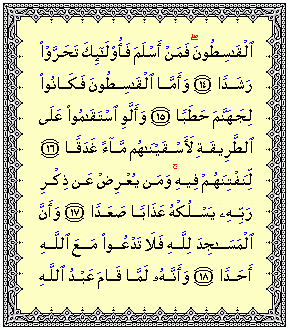 ٱلْقَٰسِطُونَ ۖ فَمَنْ أَسْلَمَ فَأُو۟لَٰٓئِكَ تَحَرَّوْا۟
رَشَدًا ﴿١٤﴾ وَأَمَّا ٱلْقَٰسِطُونَ فَكَانُوا۟
لِجَهَنَّمَ حَطَبًا ﴿١٥﴾ وَأَلَّوِ ٱسْتَقَٰمُوا۟ عَلَى
ٱلطَّرِيقَةِ لَأَسْقَيْنَٰهُم مَّآءً غَدَقًا ﴿١٦﴾
لِّنَفْتِنَهُمْ فِيهِ ۚ وَمَن يُعْرِضْ عَن ذِكْرِ
رَبِّهِۦ يَسْلُكْهُ عَذَابًا صَعَدًا ﴿١٧﴾ وَأَنَّ
ٱلْمَسَٰجِدَ لِلَّهِ فَلَا تَدْعُوا۟ مَعَ ٱللَّهِ
أَحَدًا ﴿١٨﴾ وَأَنَّهُۥ لَمَّا قَامَ عَبْدُ ٱللَّهِ